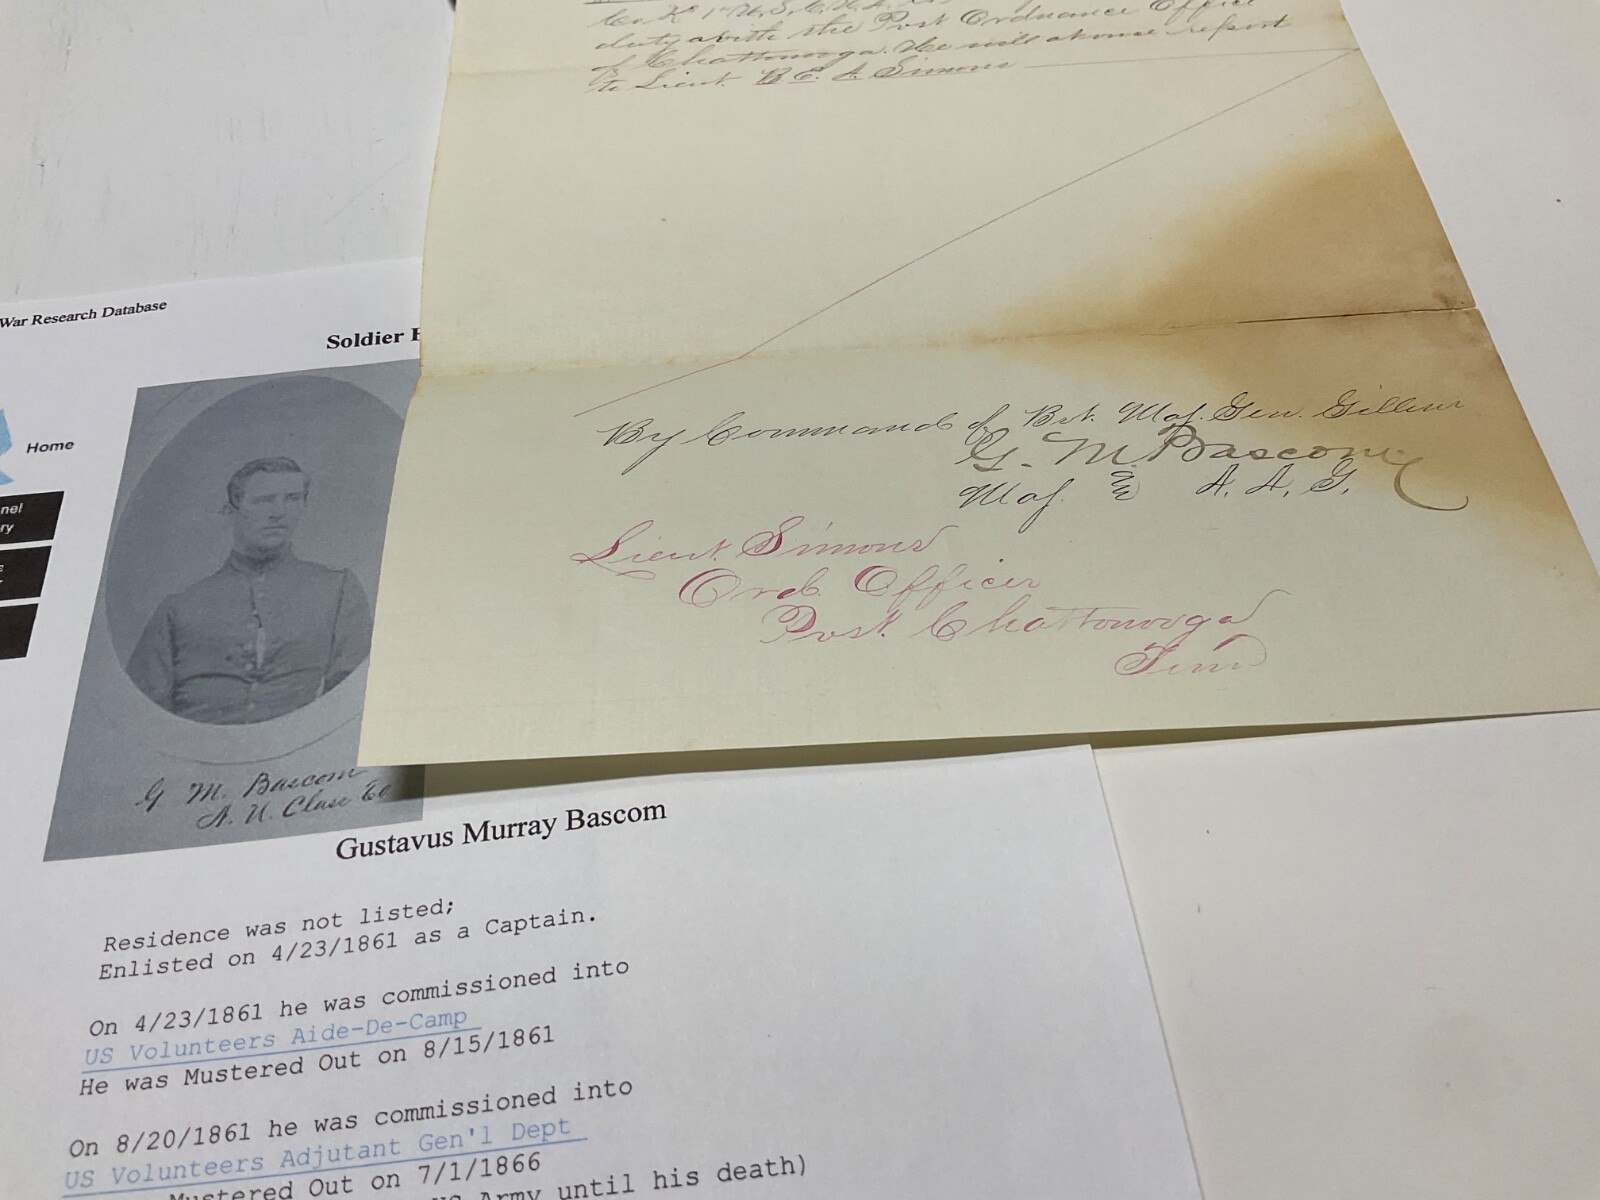 Co. K. 1st U.S.C.H.A.
duty with the Post Ordnance Office
of Chattonooga. He will at once report
to Lieut. E. A. Simons
By Command of Bvt. Maj. Gen. Gillem
G. M. Bascom
Maj. & A. A. G.
Lieut. Simons
Ord. Officer
Post. Chattonooga
Tenn
War Research Database
Soldier
Home
nel
ry
G M. Bascom
Gustavus Murray Bascom
Residence was not listed;
Enlisted on 4/23/1861 as a Captain.
On 4/23/1861 he was commissioned into
US Volunteers Aide-De-Camp
He was Mustered Out on 8/15/1861
On 8/20/1861 he was commissioned into
US Volunteers Adjutant Gen'l Dept
Mustered Out on 7/1/1866
Army until his death)